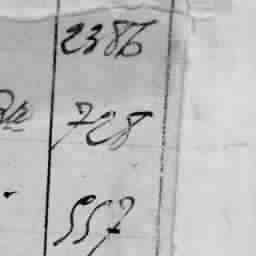 2386
728
557